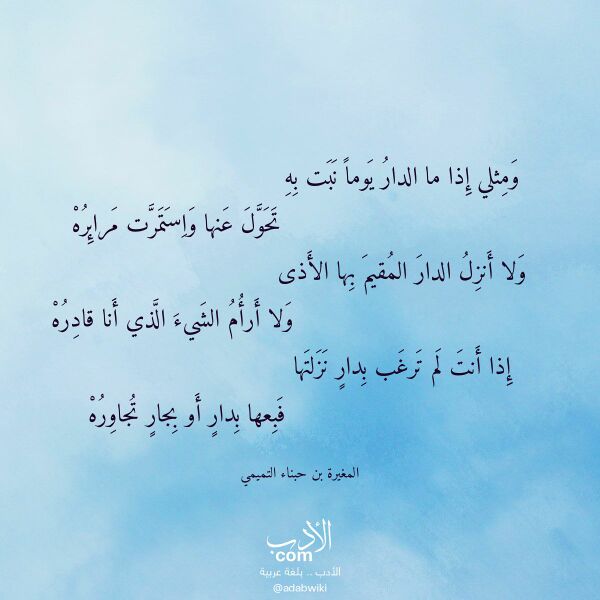 وَمِثلي إِذا ما الدارُ يَوماً نَبَت بِهِ
تَحَوَّلَ عَنها وَاِستَمَرَّت مَرايِرُهْ
وَلا أَنزِلُ الدارَ المُقيمَ بِها الأَذى
وَلا أَرأُمُ الشَيءَ الَّذي أَنا قادِرُهْ
إِذا أَنتَ لَم تَرغَب بِدارٍ نَزَلتَها
فَبِعها بِدارٍ أَو بِجارٍ تُجاوِرُهْ
المغيرة بن حبناء التميمي
الأدب
com
الأدب .. بلغة عربية
@adabwiki